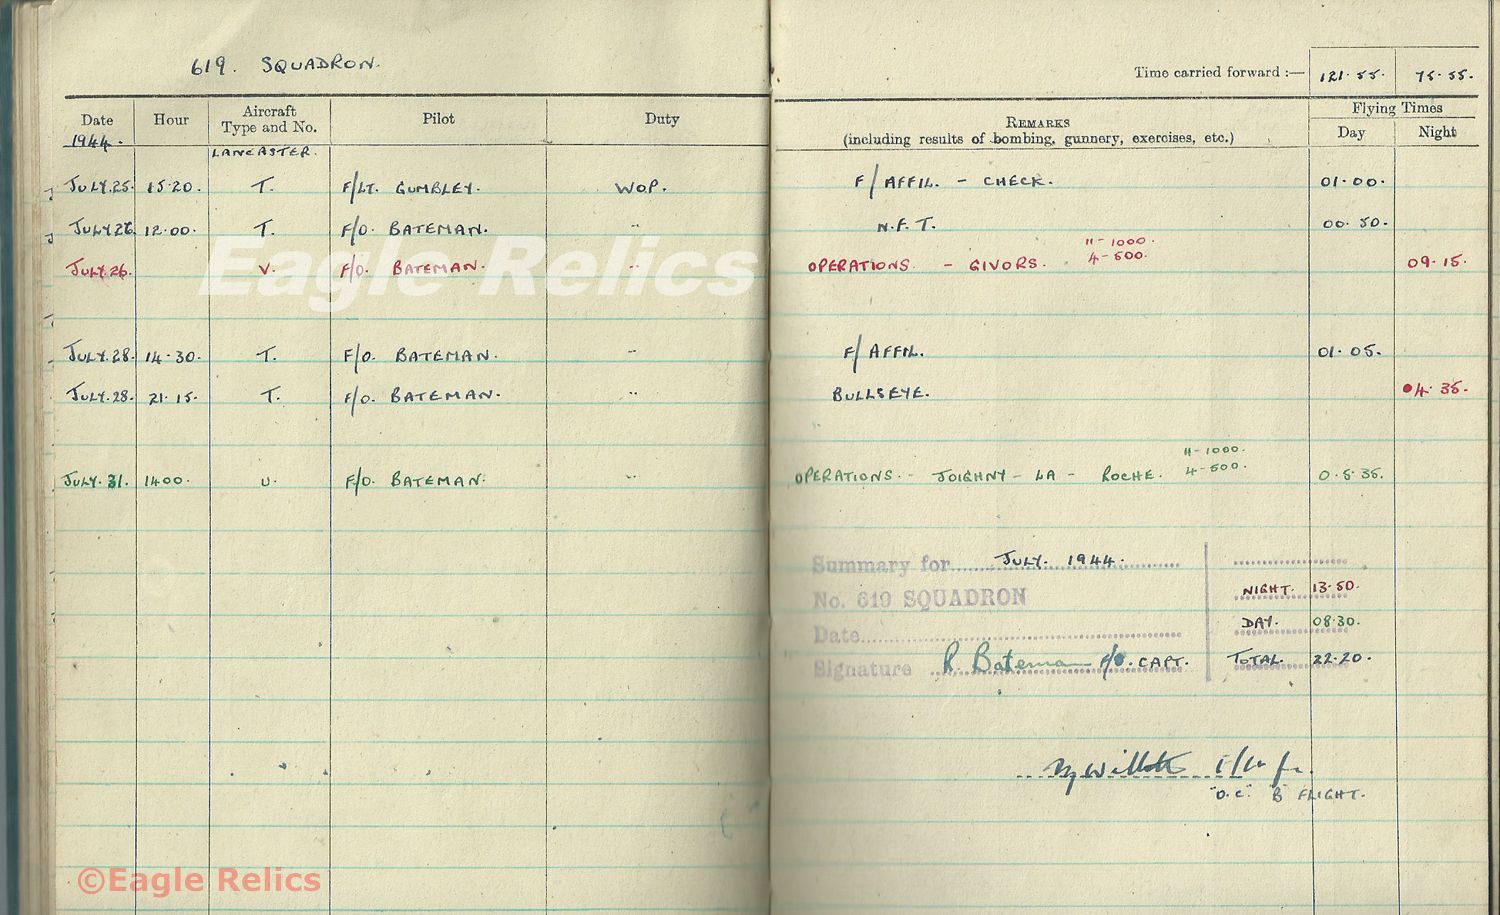 619. SQUADRON.
Time carried forward :— 121.55. 75.55.
Date Hour Aircraft Type and No. Pilot Duty REMARKS (including results of bombing, gunnery, exercises, etc.) Flying Times Day Night
1944. LANCASTER.
JULY.25. 15.20. T. F/LT. GUMBLEY. WOP. F/AFFIL. - CHECK. 01.00.
JULY 26. 12.00. T. F/O. BATEMAN. " N.F.T. 00.50.
JULY.26. V. F/O. BATEMAN. " OPERATIONS. - GIVORS. 11-1000. 4-500. 09.15.
Eagle Relics
JULY.28. 14.30. T. F/O. BATEMAN. " F/AFFIL. 01.05.
JULY.28. 21.15. T. F/O. BATEMAN. " BULLSEYE. 04.35.
JULY.31. 1400. U. F/O. BATEMAN. " OPERATIONS.- JOIGHNY-LA-ROCHE. 11-1000. 4-500. 05.35.
Summary for JULY. 1944.
No. 619 SQUADRON NIGHT. 13.50.
Date DAY. 08.30.
Signature R. Bateman F/O. CAPT. TOTAL. 22.20.
"O.C." "B" FLIGHT.
©Eagle Relics